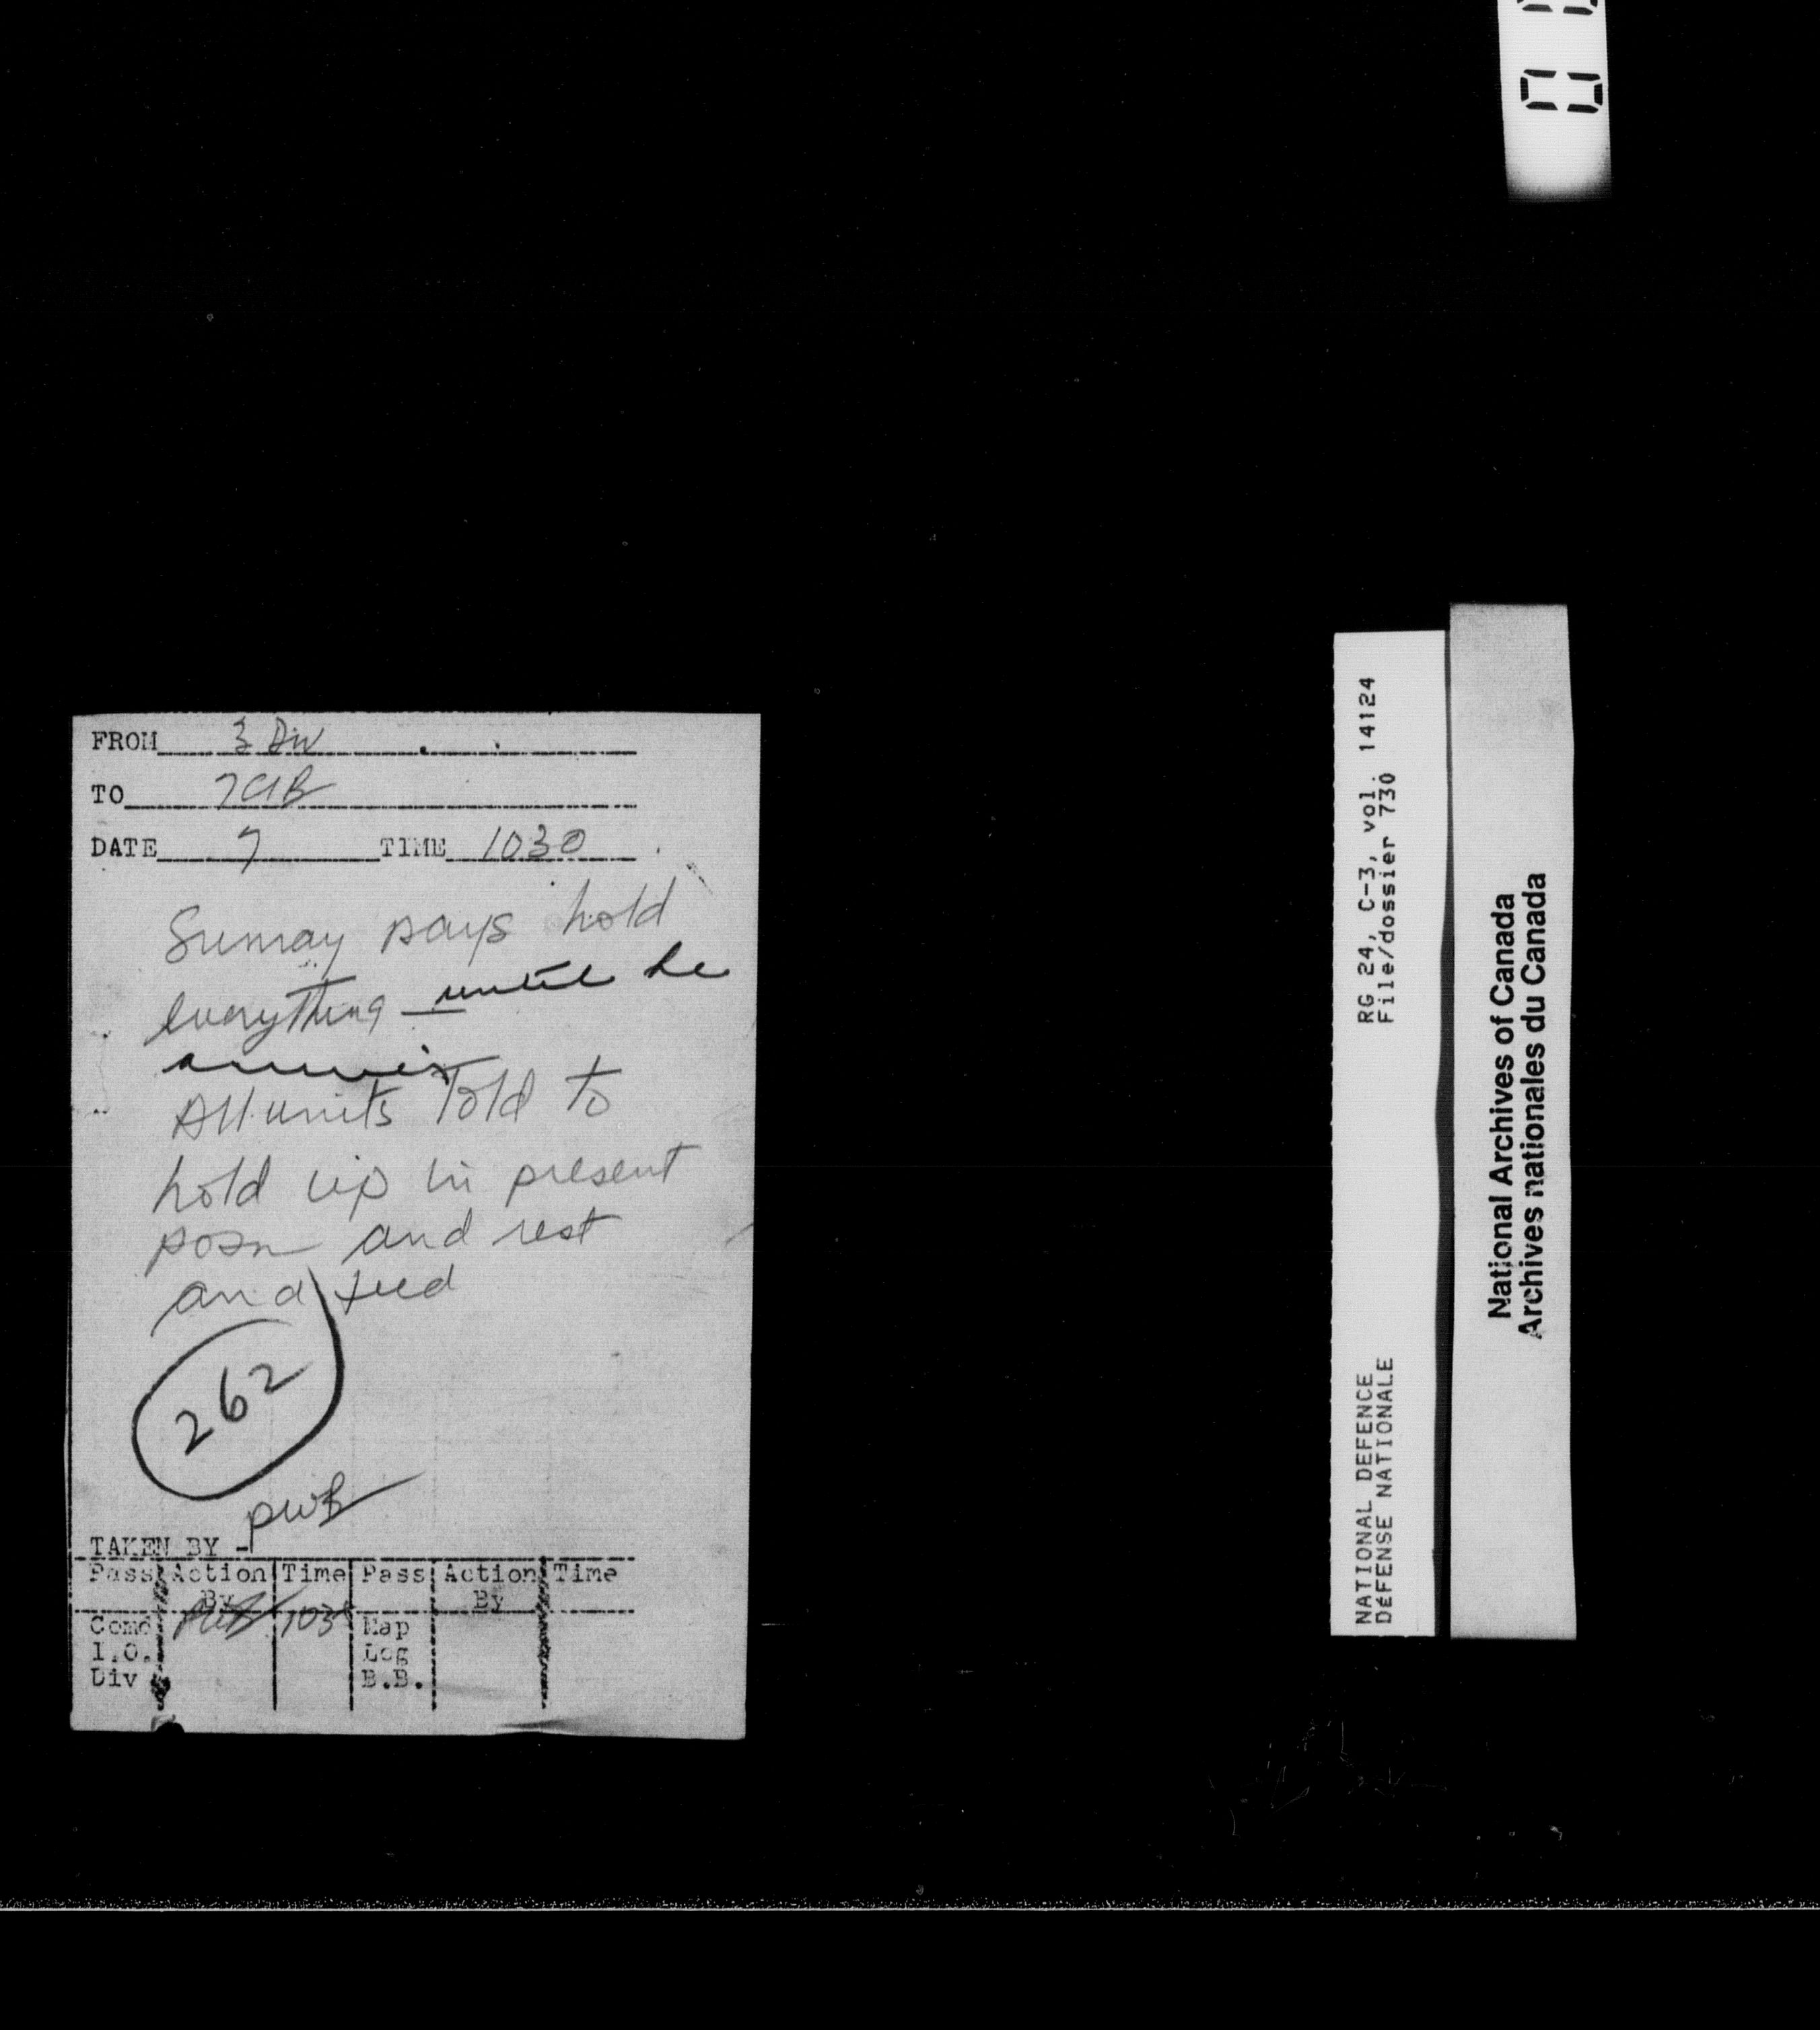 FROM 3 Div
TO 7 CIB
DATE 7 TIME 1030
Sunray says hold
everything until he
arrives
All units told to
hold up in present
posn and rest
and feed
262
PWB
TAKEN BY
Pass Action By Time Pass Action By Time
Comd PWB 1035 Map
I.O. Log
Div B.B.
RG 24, C-3, vol. 14124
File/dossier 730
NATIONAL DEFENCE
DÉFENSE NATIONALE
National Archives of Canada
Archives nationales du Canada